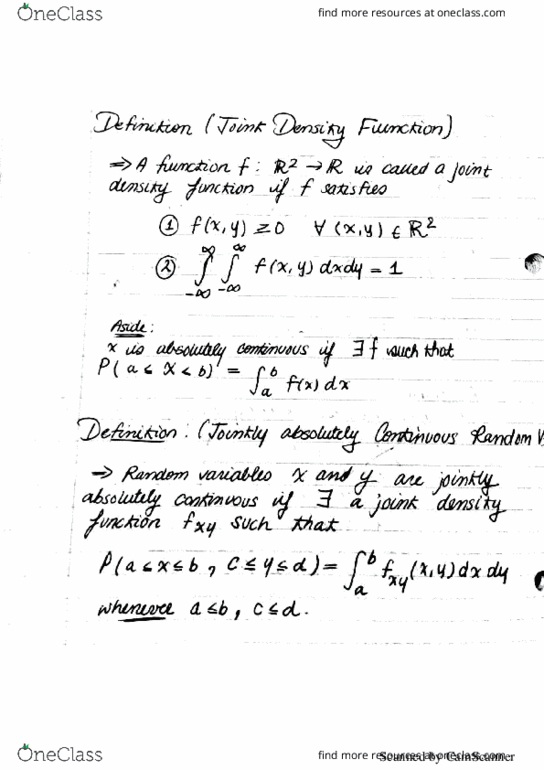 OneClass
find more resources at oneclass.com
Definition (Joint Density Function)
⇒ A function f : ℝ² → ℝ is called a joint
density function if f satisfies
① f(x,y) ≥ 0 ∀ (x,y) ∈ ℝ²
② ∫_{-∞}^{∞} ∫_{-∞}^{∞} f(x,y) dxdy = 1
Aside:
x is absolutely continuous if ∃ f such that
P( a ≤ X ≤ b) = ∫_a^b f(x) dx
Definition : (Jointly absolutely Continuous Random V
→ Random variables x and y are jointly
absolutely continuous if ∃ a joint density
function f_{xy} such that
P(a ≤ x ≤ b , c ≤ y ≤ d) = ∫_a^b f_{xy}(x,y) dx dy
whenever a ≤ b, c ≤ d.
OneClass
find more resources at oneclass.com
Scanned by CamScanner